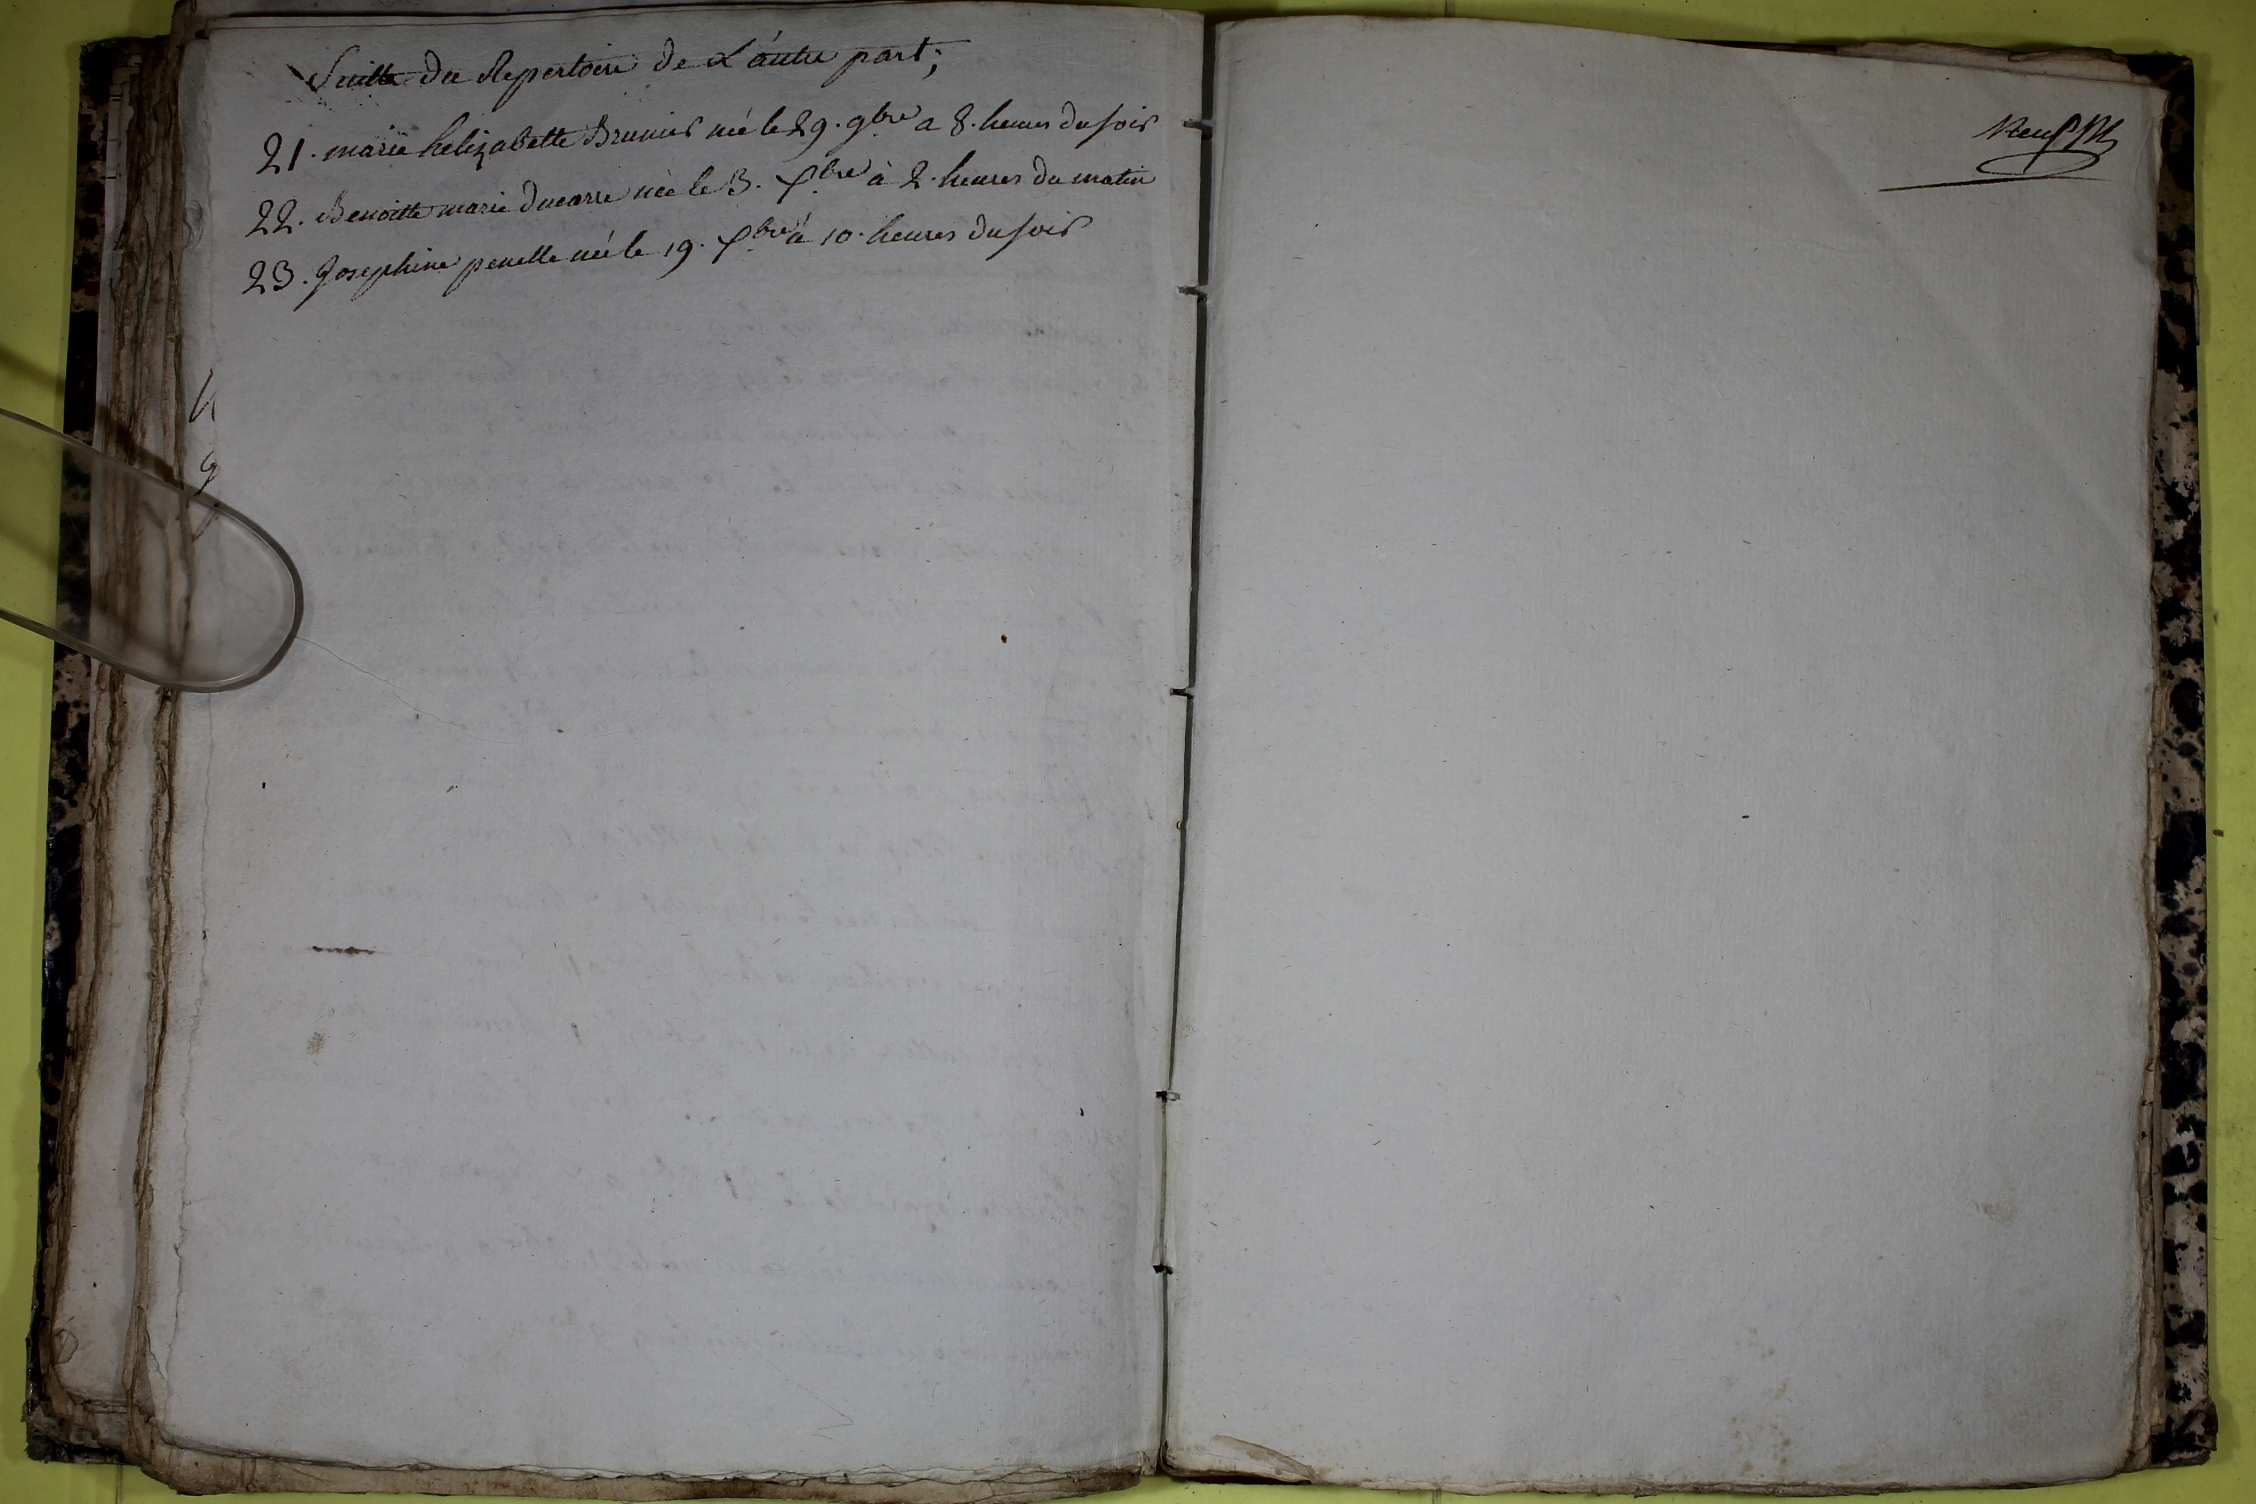 Suitte du Repertoire de L'autre part;
21. marie helizabette Brunier née le 29. 9bre a 8. heures du soir
22. Benoitte marie Ducarre née le 3. Xbre à 2. heures du matin
23. Josephine penelle née le 19. Xbre à 10. heures du soir
neuf